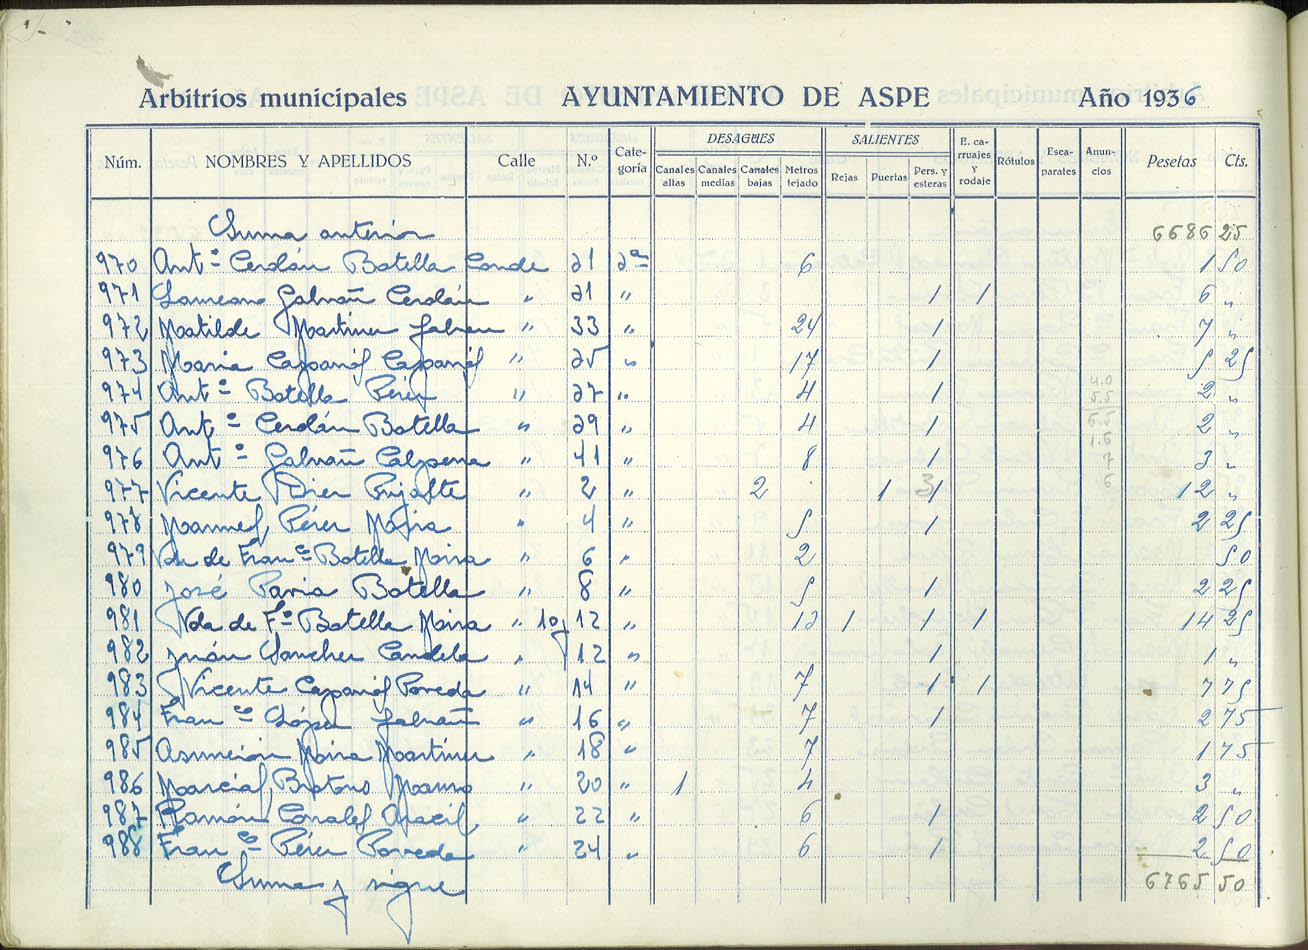 Arbitrios municipales AYUNTAMIENTO DE ASPE Año 1936
DESAGÜES SALIENTES
Núm. NOMBRES Y APELLIDOS Calle N.º Cate-goría Canales altas Canales medias Canales bajas Metros tejado Rejas Puertas Pers. y esteras E. ca-rruajes y rodaje Rótulos Esca-parates Anun-cios Pesetas Cts.
Suma anterior 6686 25
970 Antº Cerdán Botella Conde 21 2ª 6 1 50
971 Galvañ Cerdán " 21 " 1 1 6 "
972 Matilde Martínez Galvañ " 33 " 24 1 7 "
973 María Caparrós Caparrós " 25 " 17 1 5 25
974 Antº Botella Pérez " 27 " 4 1 2 "
975 Antº Cerdán Botella " 29 " 4 1 2 "
976 Antº Galvañ Calpena " 41 " 8 1 3 "
977 Vicente Mier Pujalte " 2 " 2 1 3 1 12 "
978 Pérez Mejía " 4 " 5 1 2 25
979 Vda de Franº Botella Mira " 6 " 2 50
980 José Pavia Botella " 8 " 5 1 2 25
981 Vda de Fº Botella Mira " 10 y 12 " 13 1 1 1 14 25
982 Juán Sánchez Candela " 12 " 1 1 "
983 Vicente Caparrós Poveda " 14 " 7 1 1 7 75
984 Franco López Galvañ " 16 " 7 1 2 75
985 Asunción Mira Martínez " 18 " 7 1 75
986 Marcial Brotons " 20 " 1 4 3 "
987 Ramón Corrales Aracil " 22 " 6 1 2 50
988 Franco Pérez Poveda " 24 " 6 1 2 50
Suma y sigue 6765 50